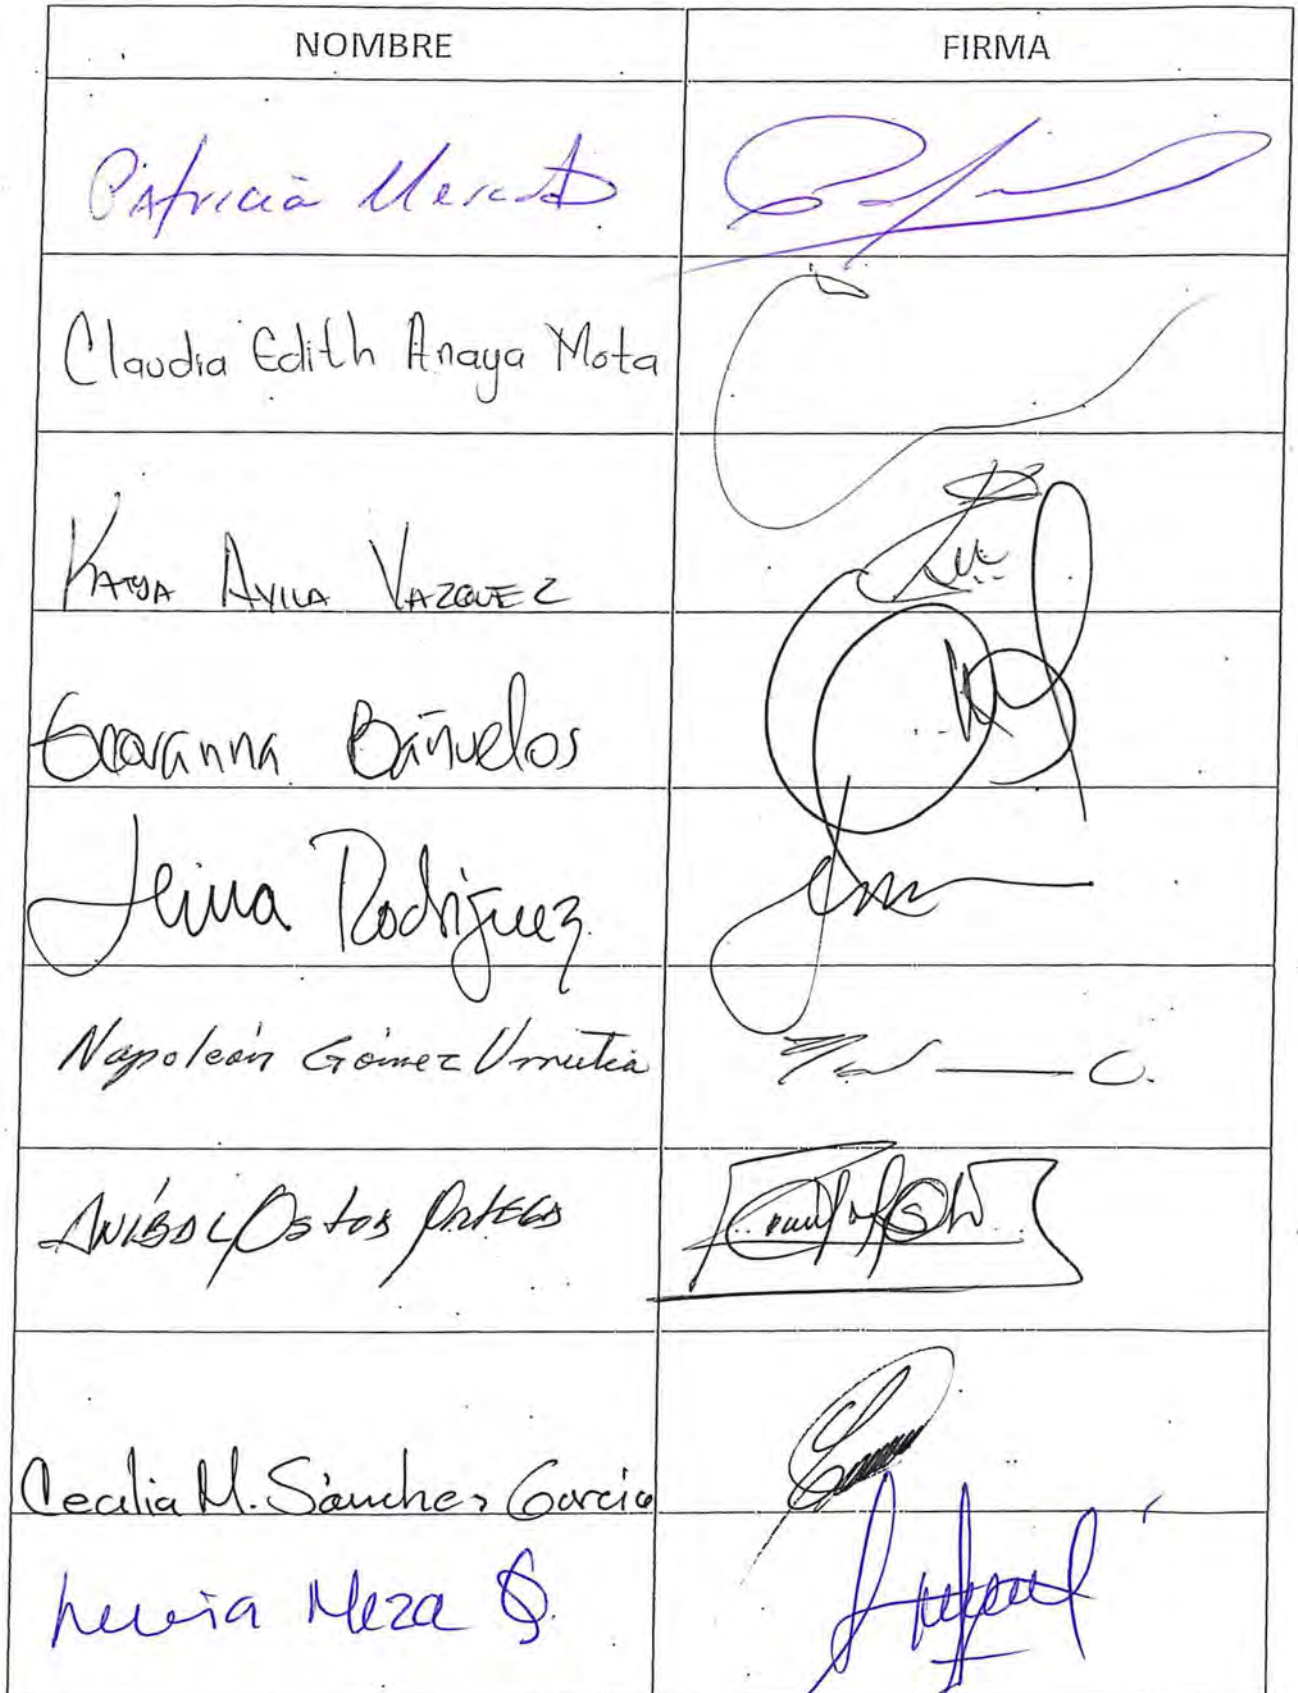 NOMBRE FIRMA
Patricia Mercado
Claudia Edith Anaya Mota
KATYA AVILA VAZQUEZ
Geovanna Bañuelos
Rodríguez
Napoleón Gómez Urrutia
ANÍBAL Ostos ORTEGA
Cecilia M. Sánchez García
Meza